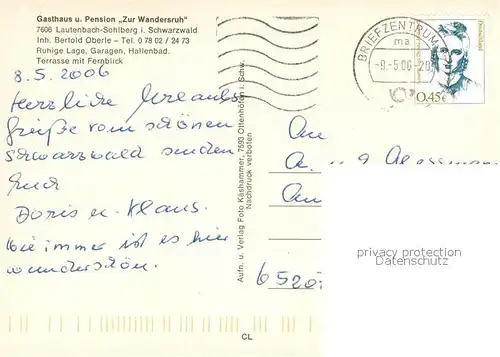 Gasthaus u. Pension „Zur Wandersruh"
7606 Lautenbach-Sohlberg i. Schwarzwald
Inh. Bertold Oberle – Tel. 0 78 02 / 24 73
Ruhige Lage, Garagen, Hallenbad.
Terrasse mit Fernblick
8.5.2006
Herzliche Urlaubs
grüße vom schönen
Schwarzwald senden
Euch
Doris u. Klaus.
Wie immer ist es hier
wunderschön.
Aufn. u. Verlag Foto Käshammer, 7593 Ottenhöfen i. Schw.
Nachdruck verboten
CL
BRIEFZENTRUM
ma
-9.-5.06-20
Deutschland
0,45€
An
A
An
6520
privacy protection
Datenschutz